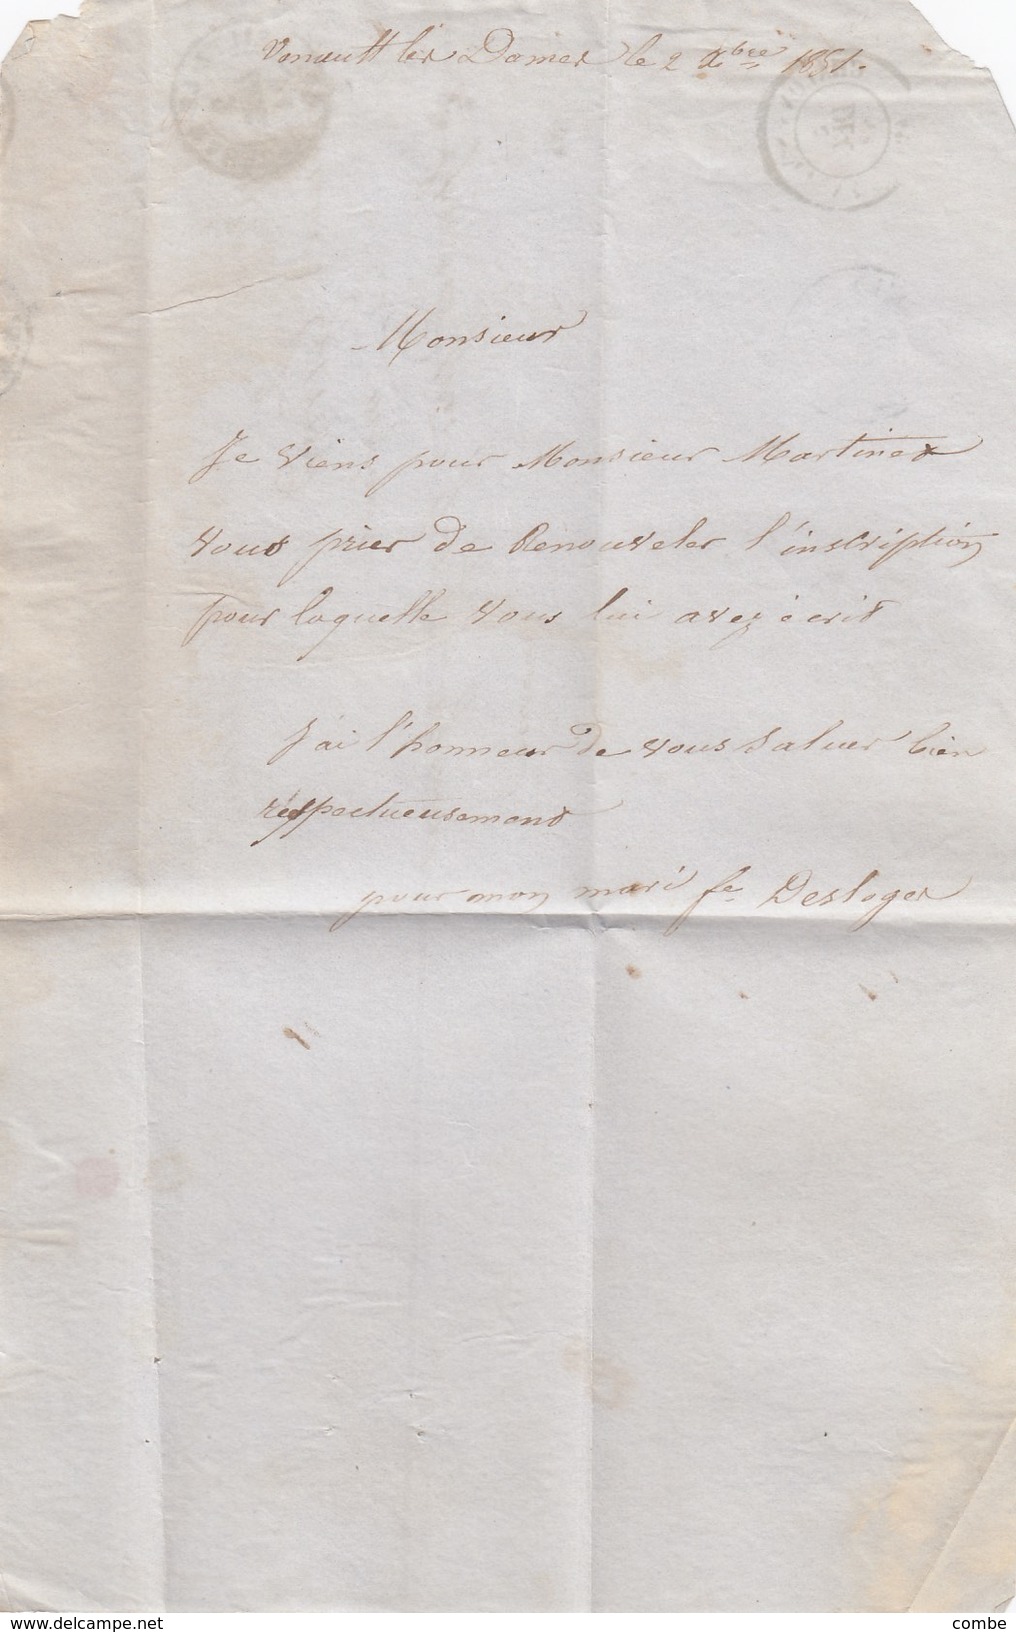 Venault les Dames le 2 Xbre 1851.
Monsieur
Je viens pour Monsieur Martinet
vous prier de Renouveler l'inscription
pour laquelle vous lui avez écrit
J'ai l'honneur de vous Saluer bien
respectueusement
pour mon mari fe Desloges
www.delcampe.net
combe